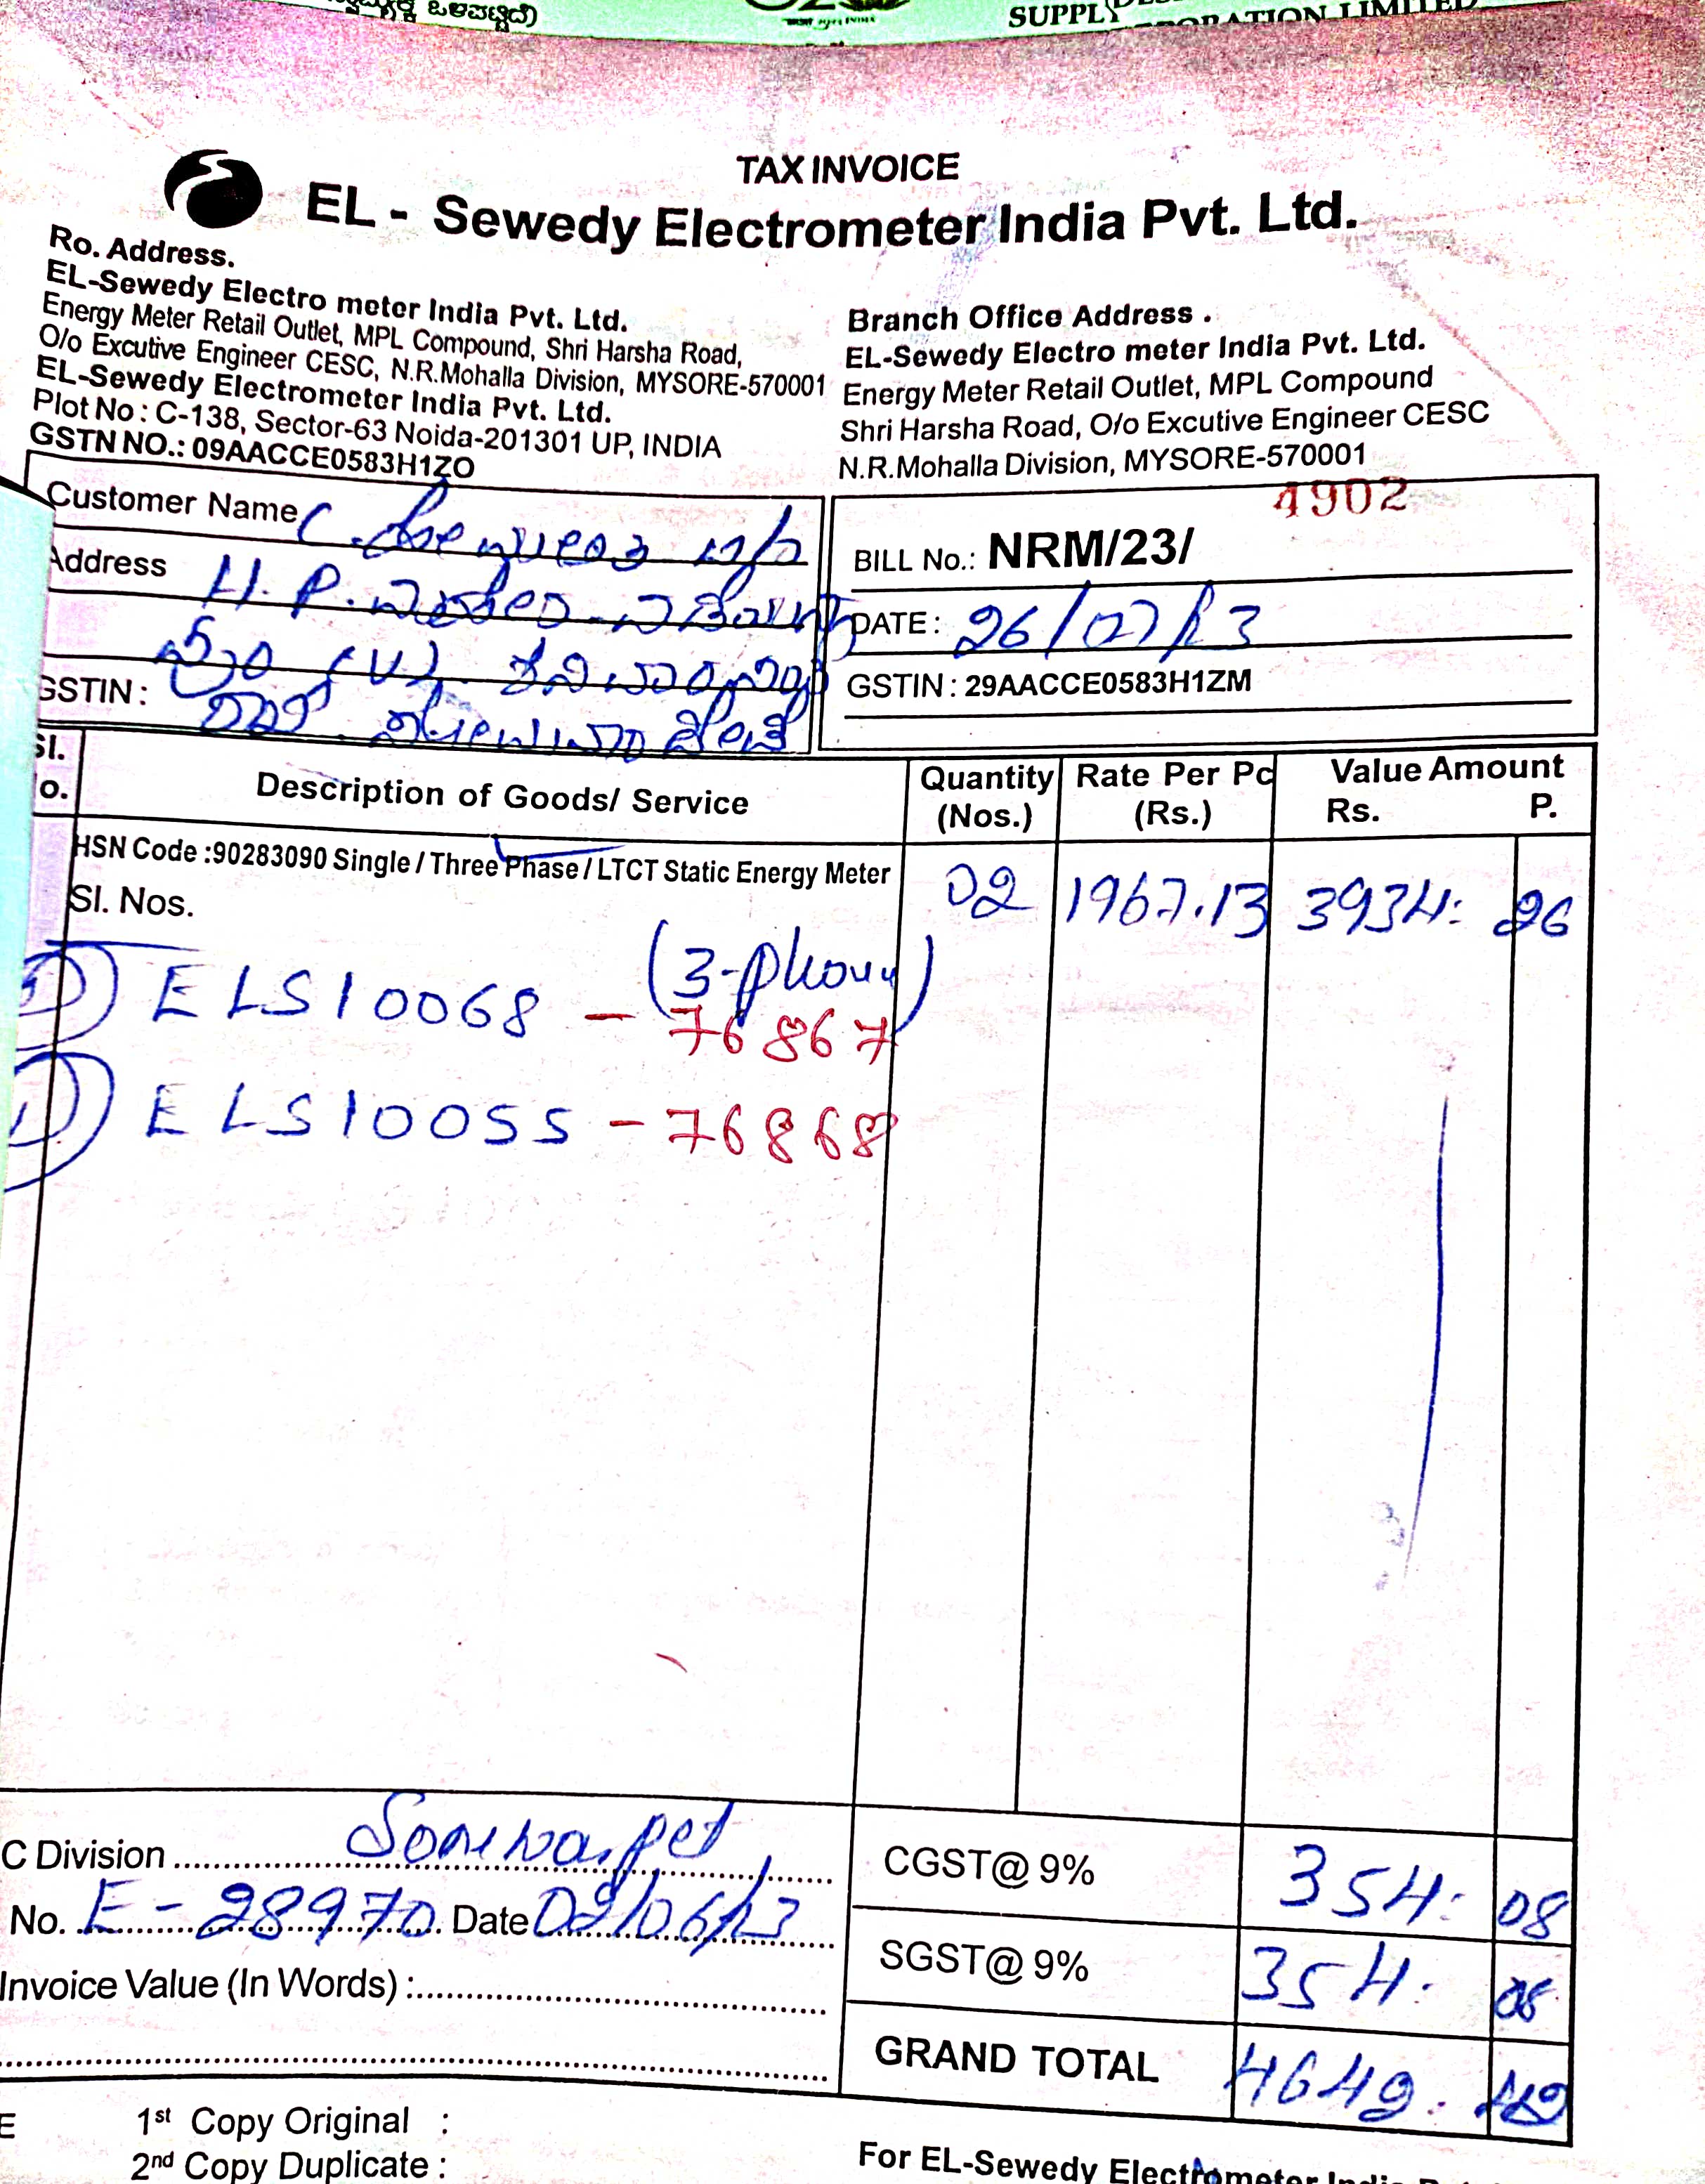 ಒಳಪಟ್ಟಿದೆ)
SUPPLY CORPORATION LIMITED
TAX INVOICE
EL - Sewedy Electrometer India Pvt. Ltd.
Ro. Address.
EL-Sewedy Electro meter India Pvt. Ltd.
Energy Meter Retail Outlet, MPL Compound, Shri Harsha Road,
O/o Excutive Engineer CESC, N.R.Mohalla Division, MYSORE-570001
EL-Sewedy Electrometer India Pvt. Ltd.
Plot No : C-138, Sector-63 Noida-201301 UP, INDIA
GSTN NO.: 09AACCE0583H1ZO
Branch Office Address .
EL-Sewedy Electro meter India Pvt. Ltd.
Energy Meter Retail Outlet, MPL Compound
Shri Harsha Road, O/o Excutive Engineer CESC
N.R.Mohalla Division, MYSORE-570001
Customer Name C.
Address H. P.
GSTIN :
4902
BILL No.: NRM/23/
DATE : 26/07/23
GSTIN : 29AACCE0583H1ZM
Sl. No. Description of Goods/ Service Quantity (Nos.) Rate Per Pc (Rs.) Value Amount Rs. P.
HSN Code :90283090 Single / Three Phase / LTCT Static Energy Meter 02 1967.13 3934: 26
Sl. Nos.
(3-phase)
ELS10068 - 76867
ELS10055 - 76868
C Division Somwarpet
No. E-28970 Date 02/06/23
Invoice Value (In Words) :
CGST@ 9% 354: 08
SGST@ 9% 354. 08
GRAND TOTAL 4642. 42
1st Copy Original :
2nd Copy Duplicate :
For EL-Sewedy Electrometer India